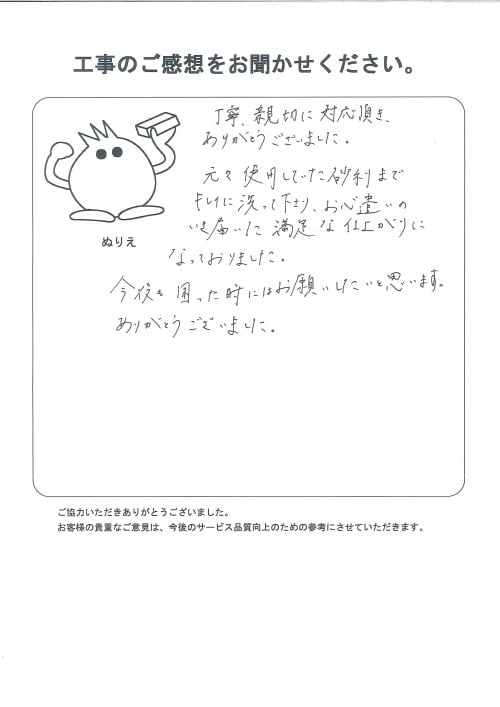 工事のご感想をお聞かせください。
丁寧、親切に対応頂き、
ありがとうございました。
元々使用していた砂利まで
キレイに洗って下さり、お心遣いの
いき届いた満足な仕上がりに
なっておりました。
ぬりえ
今後も困った時にはお願いしたいと思います。
ありがとうございました。
ご協力いただきありがとうございました。
お客様の貴重なご意見は、今後のサービス品質向上のための参考にさせていただきます。